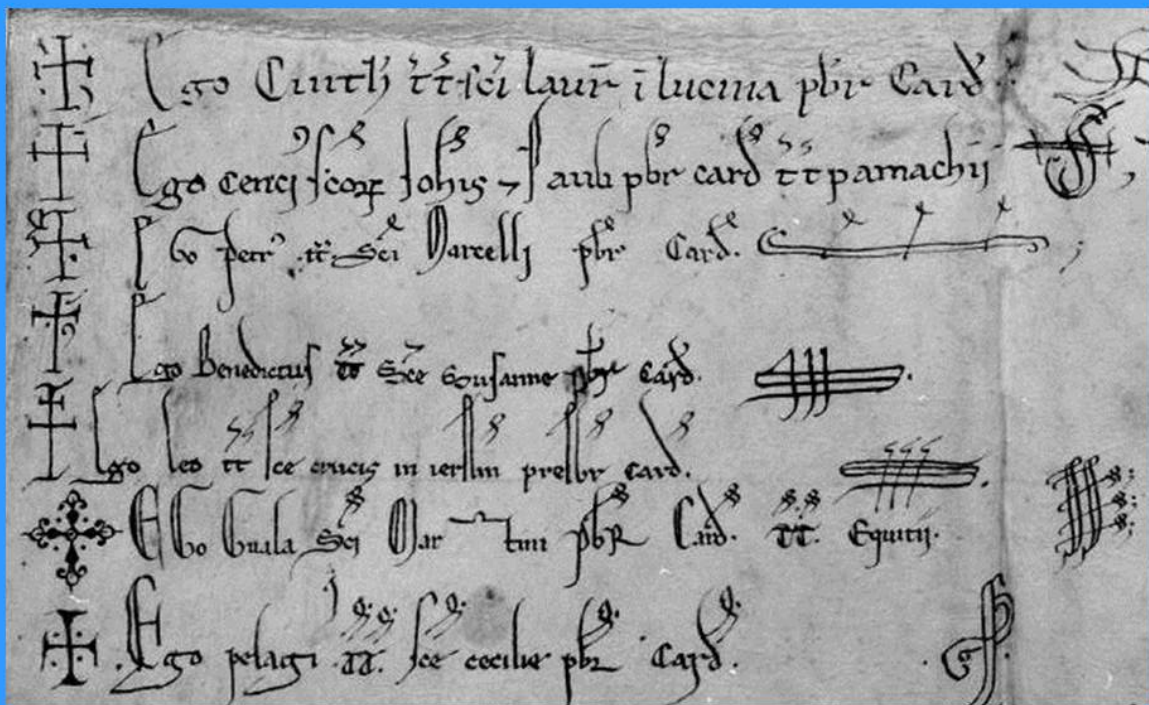 Ego Cinth̄ t̄t̄ sc̄i laur̄ ī lucina pb̄r Card̄.
Ego cenci sc̄oꝝ Joh̄is ⁊ Pauli pb̄r card̄ t̄t̄ pamachij
Ego petrꝰ t̄t̄ Sc̄i Marcelli pb̄r Card̄.
Ego Benedictus t̄t̄ Sc̄e Susanne pb̄r card̄.
Ego leo t̄t̄ sc̄e crucis in ierl̄m presb̄r card̄.
EGo Guala Sc̄i Martini pb̄R Card̄. t̄t̄. Equitij.
Ego pelagi t̄t̄. sc̄e cecilie pb̄r Card̄.